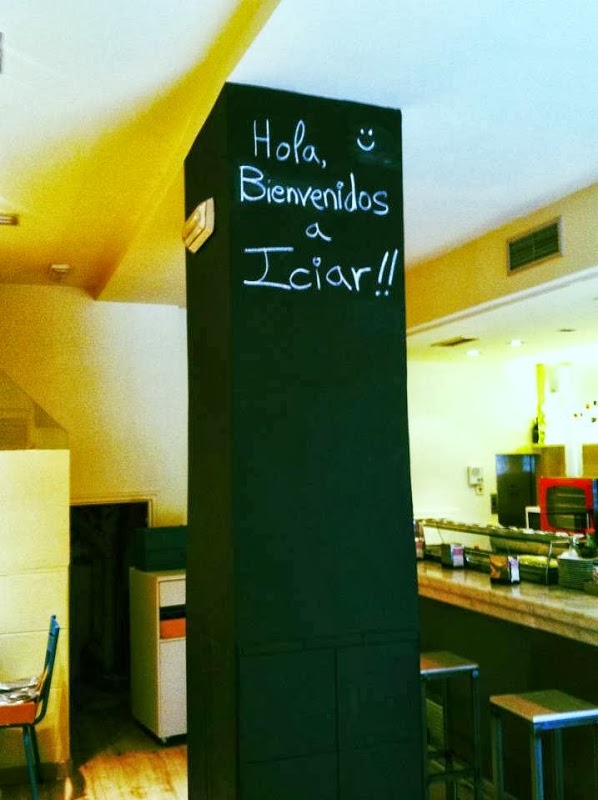 Hola,
Bienvenidos
a
Iciar!!